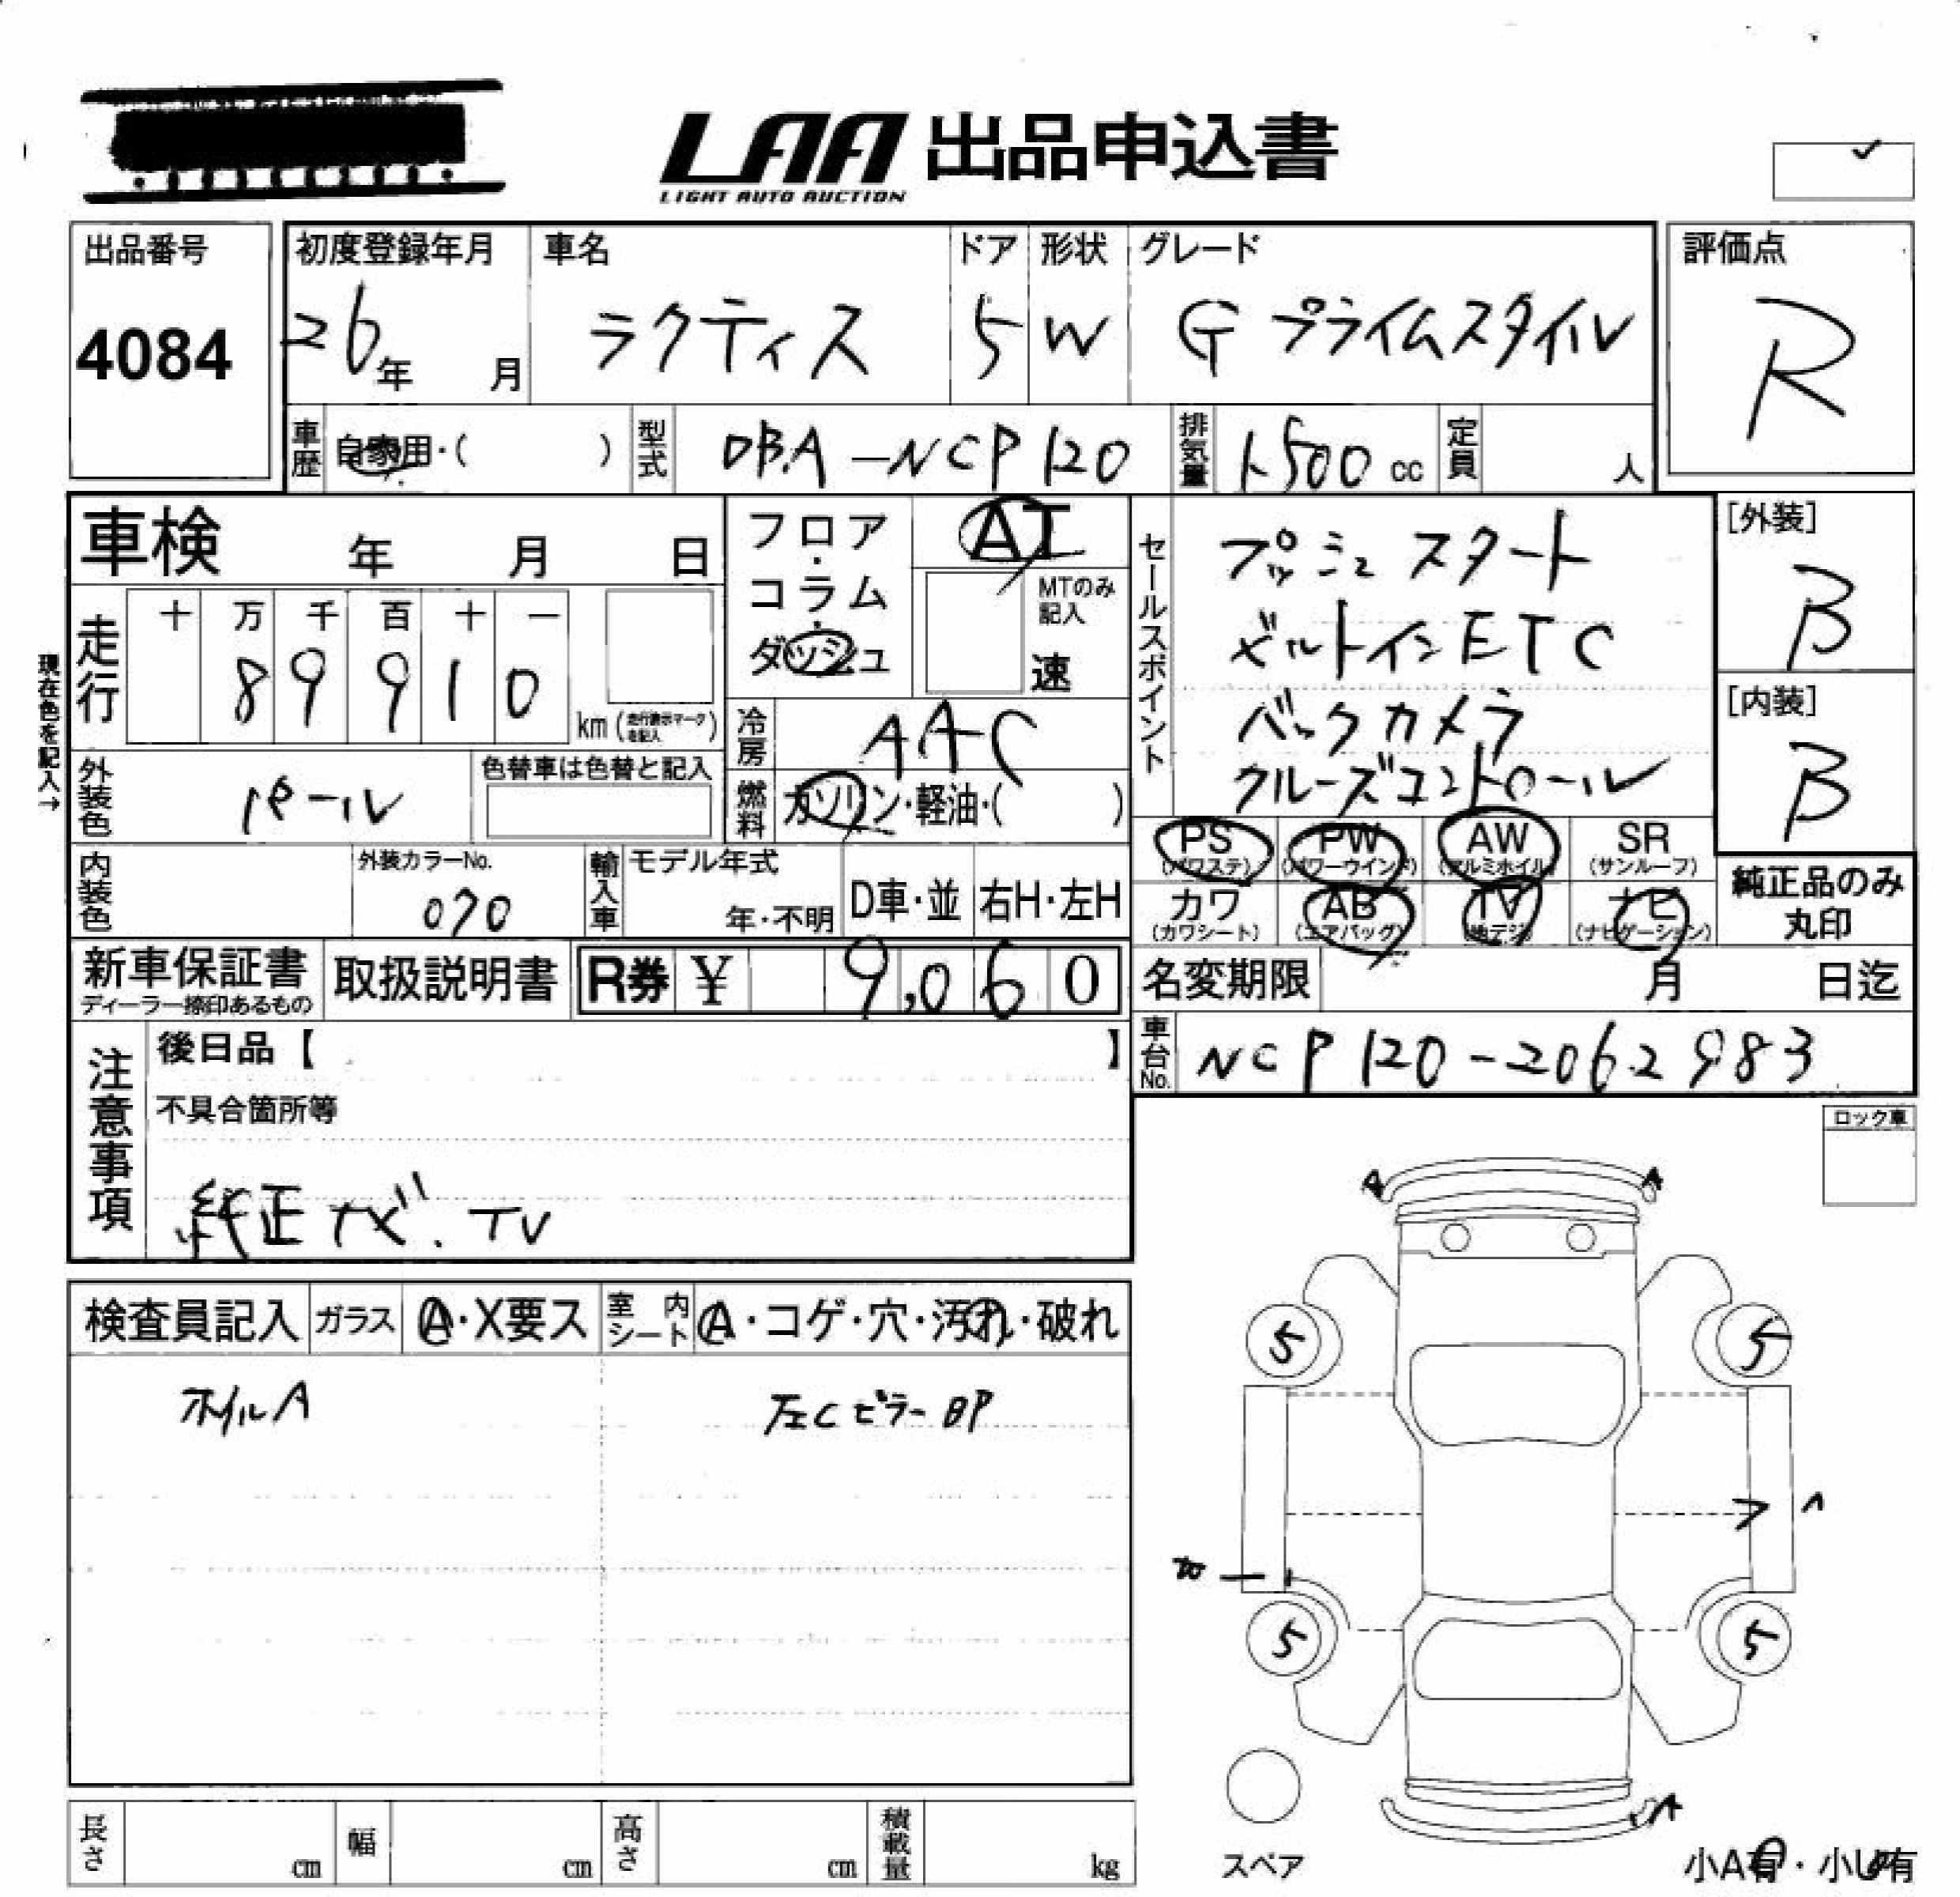 LAA 出品申込書
LIGHT AUTO AUCTION
出品番号
4084
初度登録年月
26年 月
車名
ラクティス
ドア
5
形状
W
グレード
G プライムスタイル
評価点
R
車歴 自家用・( )
型式 DBA-NCP120
排気量 1500 cc
定員 人
車検 年 月 日
フロア・コラム・ダッシュ
AT
MTのみ記入
速
セールスポイント
プッシュスタート
ビルトインETC
バックカメラ
クルーズコントロール
[外装]
B
[内装]
B
現在色を記入→
走行
十 万 千 百 十 一
8 9 9 1 0
km (走行表示マークを記入)
冷房 AAC
外装色 パール
色替車は色替と記入
燃料 ガソリン・軽油・( )
PS (パワステ) PW (パワーウインド) AW (アルミホイル) SR (サンルーフ)
カワ (カワシート) AB (エアバッグ) TV (地デジ) ナビ (ナビゲーション)
純正品のみ丸印
内装色
外装カラーNo.
070
輸入車
モデル年式
年・不明
D車・並
右H・左H
新車保証書
ディーラー捺印あるもの
取扱説明書
R券 ¥ 9,060
名変期限 月 日迄
車台No. NCP120-2062983
注意事項
後日品【 】
不具合箇所等
純正ナビ.TV
ロック車
検査員記入 ガラス A・X要ス 室内シート A・コゲ・穴・汚れ・破れ
ホイルA
左Cピラー BP
A
A
5
5
5
5
A
スペア
小A有・小U有
長さ cm
幅 cm
高さ cm
積載量 kg